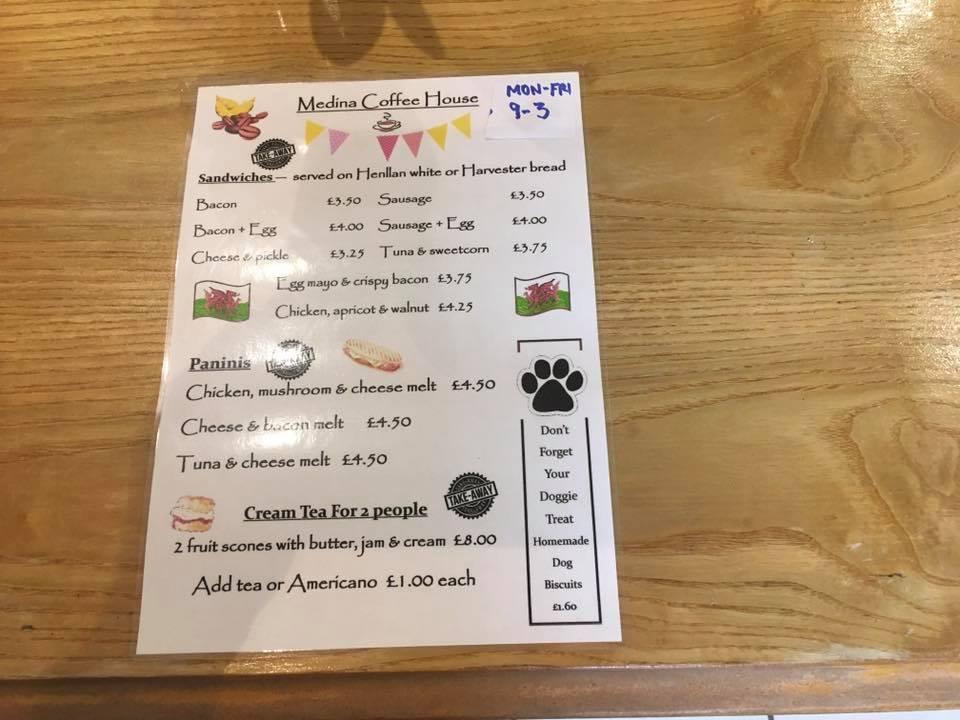 Medina Coffee House
MON-FRI
9-3
TAKE-AWAY
Sandwiches — served on Henllan white or Harvester bread
Bacon £3.50 Sausage £3.50
Bacon + Egg £4.00 Sausage + Egg £4.00
Cheese & pickle £3.25 Tuna & sweetcorn £3.75
Egg mayo & crispy bacon £3.75
Chicken, apricot & walnut £4.25
Paninis
Chicken, mushroom & cheese melt £4.50
Cheese & bacon melt £4.50
Tuna & cheese melt £4.50
TAKE-AWAY
Cream Tea For 2 people
2 fruit scones with butter, jam & cream £8.00
Add tea or Americano £1.00 each
Don't
Forget
Your
Doggie
Treat
Homemade
Dog
Biscuits
£1.60